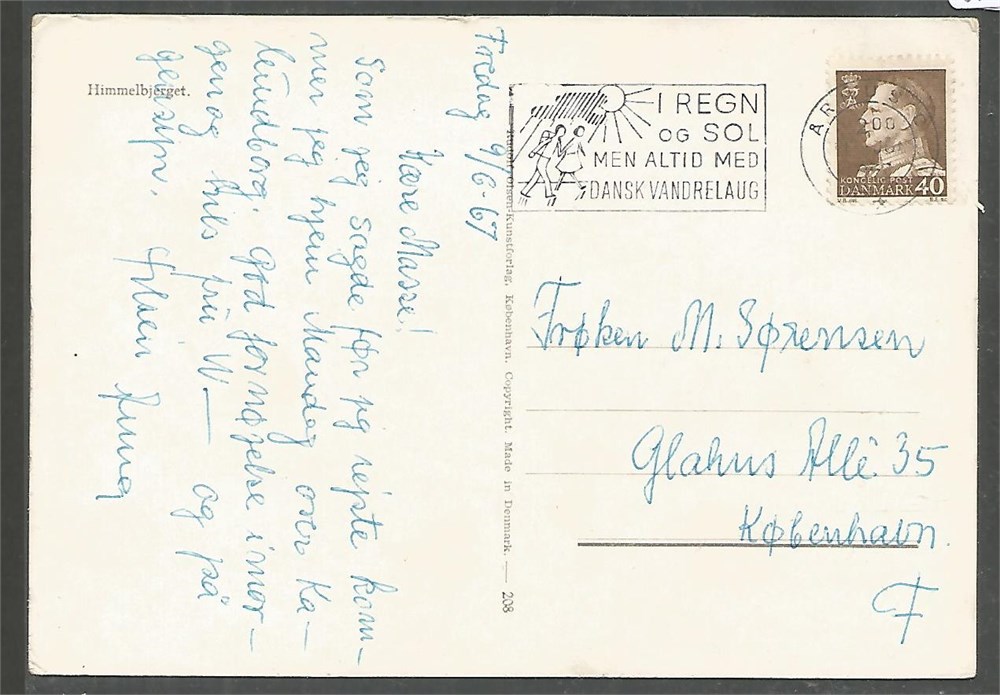 Himmelbjerget.
Fredag 9/6-67
Kære Masse!
Som jeg sagde før jg rejste kom-
mer jeg hjem Mandag over Ka-
lundborg, god fornøjelse i mor-
gen og hils fru W— og på
gensyn.
Anna
Rudolf Olsen Kunstforlag, København. Copyright. Made in Denmark. — 208
I REGN
OG SOL
MEN ALTID MED
DANSK VANDRELAUG
KONGELIG POST
DANMARK 40
Frøken M. Sørensen
Glahns Allé 35
København
F